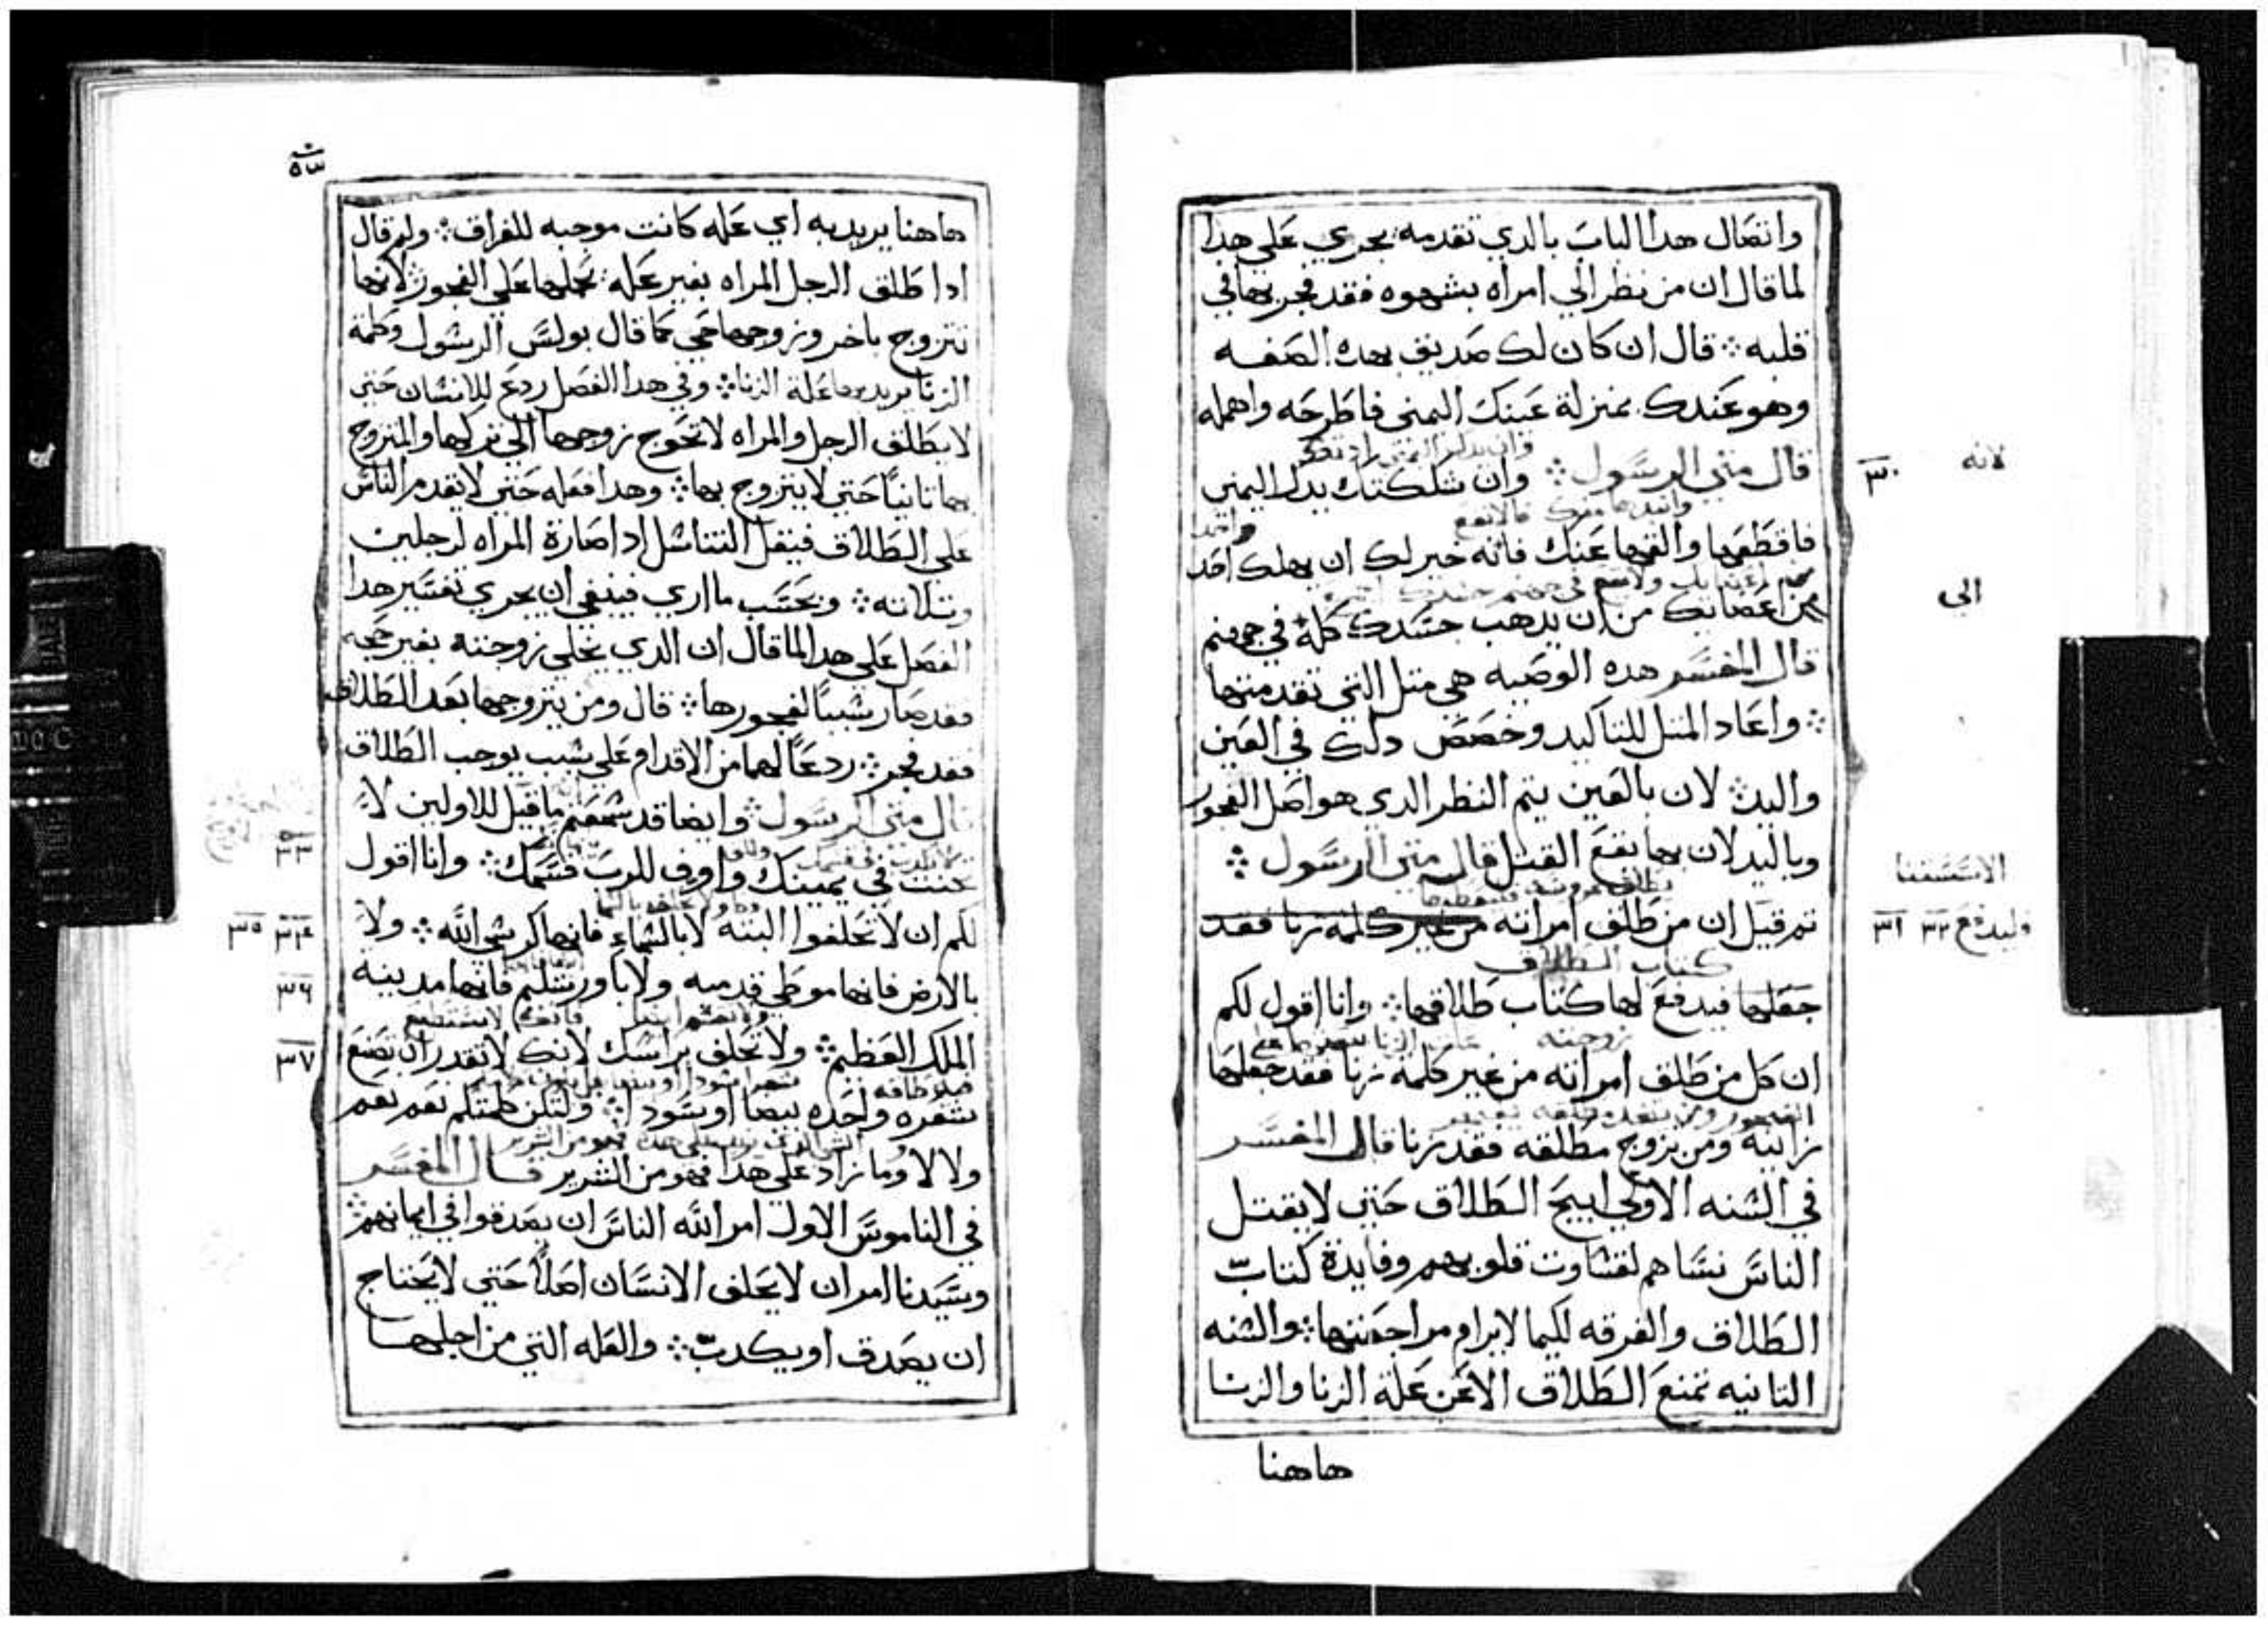 واتصال هدا الباب بالدي تقدمه يجري علي هدا
لما قال ان من نظر الي امراه بشهوه فقد فجر بها في
قلبه ؞ قال ان كان لك صديق بهده الصفه
وهو عندك بمنزلة عينك اليمني فاطرحه واهمله
قال متي الرسول ؞ وان شككتك يدك اليمني
لانه
٣٠
فاقطعها والقها عنك فانه خير لك ان يهلك احد
من اعضايك من ان يدهب جسدك كله في جهنم
الي
قال المفسر هده الوصيه هي متل التي تقدمتها
؞ واعاد المتل للتاكيد وخصص دلك في العين
واليد ؞ لان بالعين يتم النظر الدي هو اصل الفجور
وباليد لان بها يقع القتل قال متي الرسول ؞
تم قيل ان من طلق امراته من غير كلمة زنا فقد
وليدفع ٣٢ ٣١
كتاب الطلاق
جعلها فيدفع لها كتاب طلاقها ؞ وانا اقول لكم
زوجته
ان كل من طلق امراته من غير كلمة زنا فقد جعلها
زانيه ومن تزوج مطلقه فقد زنا قال المفسر
في السنه الاولي ابيح الطلاق حتي لا يقتل
الناس نساهم لقساوت قلوبهم وفايدة كتاب
الطلاق والفرقه لكيما لا يرام مراجعتها ؞ والسنه
التانيه تمنع الطلاق الا عن علة الزنا والزنا
هاهنا
٥٣
هاهنا يريد به اي عله كانت موجبه للفراق ؞ ولم قال
ادا طلق الرجل المراه بغير عله يحملها علي الفجور ؞ لانها
تتزوج باخر وزوجها حي كما قال بولس الرسول وكلمة
الزنا يريد بها علة الزنا ؞ وفي هدا الفصل ردع للانسان حتي
لا يطلق الرجل والمراه لا تحوج زوجها الي تركها والمتزوج
بها تانيًا حتي لا يتزوج بها ؞ وهدا فعله حتي لا تقدم الناس
علي الطلاق فيقل التناسل ادا صارة المراه لرجلين
وتلاته ؞ وبحسب ما اري فينبغي ان يجري تفسير هدا
الفصل علي هدا لما قال ان الدي يخلي زوجته بغير حجه
فقد صار سببًا لفجورها ؞ قال ومن يتزوجها بعد الطلاق
فقد فجر ؞ ردعًا لهما من الاقدام علي سبب يوجب الطلاق
قال متي الرسول ؞ وايضا قد سمعتم ما قيل للاولين لا
٣٣
تحنت في يمينك واوف للرب قسمك ؞ وانا اقول
لكم ان لا تحلفوا البته لا بالسماء فانها كرسي الله ؞ ولا
٣٤ ٣٥
بالارض فانها موطي قدميه ولا باورشليم فانها مدينة
٣٦
الملك العظيم ؞ ولا تحلف براسك لانك لا تقدر ان تصنع
٣٧
شعره واحده بيضا او سودا ؞ ولتكن كلمتكم نعم نعم
ولا لا وما زاد علي هدا فهو من الشرير قال المفسر
في الناموس الاول امر الله الناس ان يصدقوا في ايمانهم ؞
وسيدنا امر ان لا يحلف الانسان اصلًا حتي لا يحتاج
ان يصدق او يكدب ؞ والعله التي من اجلها